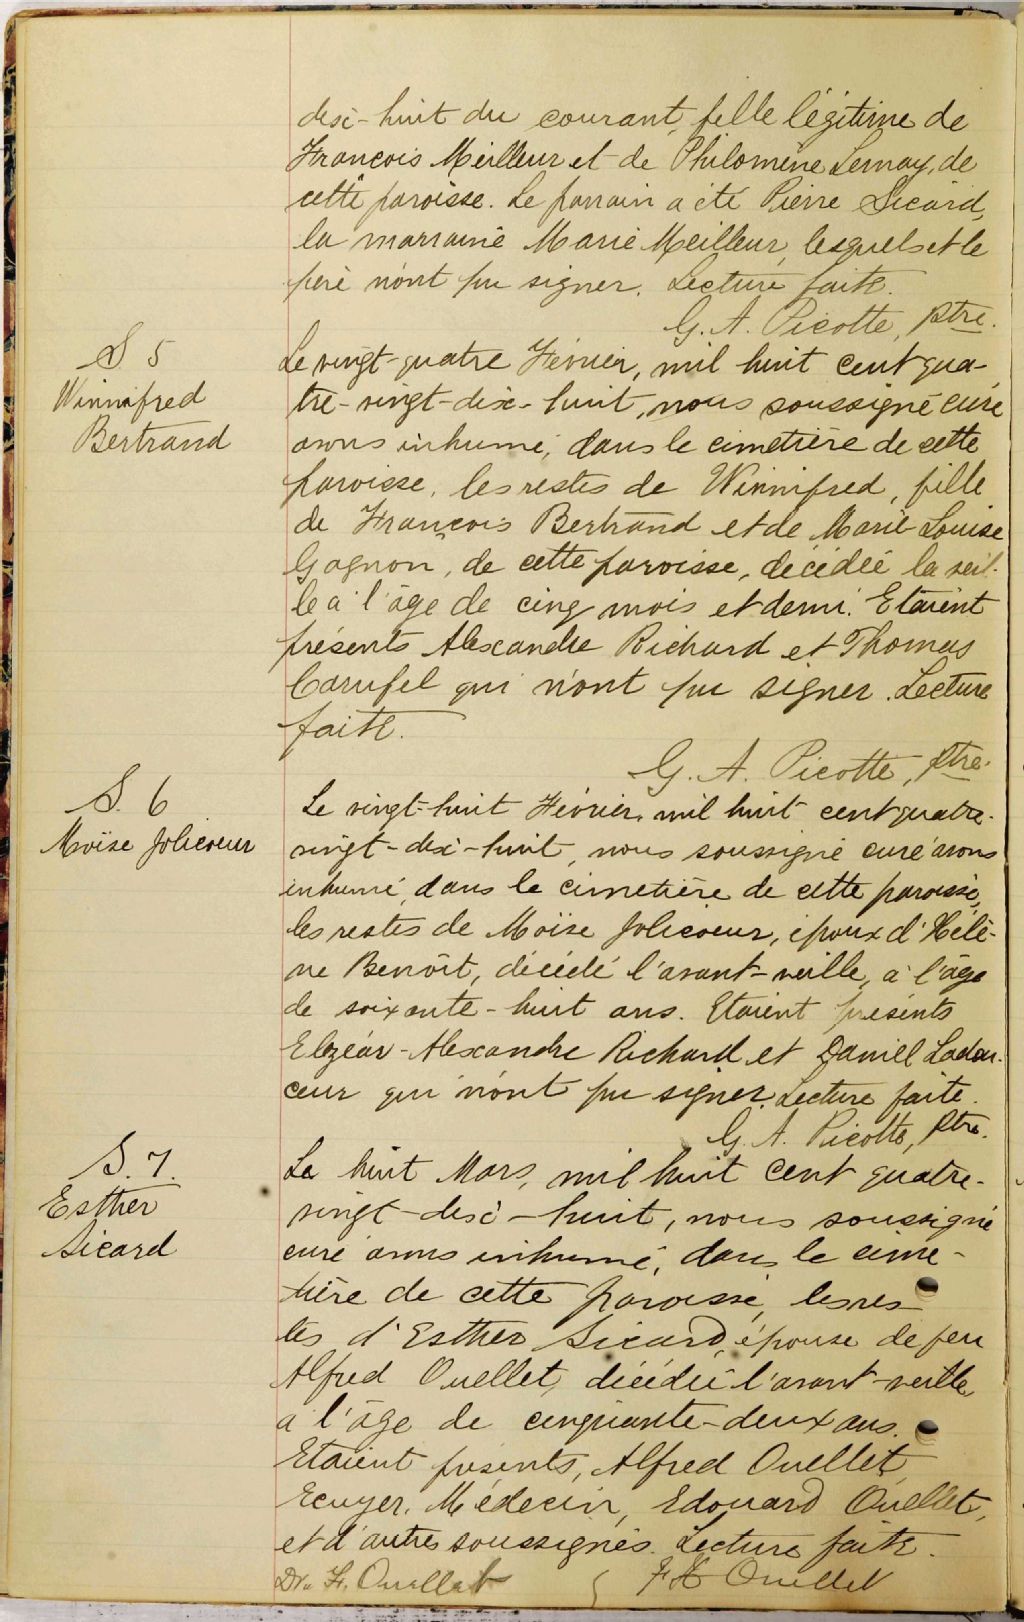 dix-huit du courant, fille légitime de
François Meilleur et de Philomène Lemay, de
cette paroisse. Le parrain a été Pierre Sicard,
la marraine Marie Meilleur, lesquels et le
père n'ont pu signer. Lecture faite.
G. A. Picotte, ptre.
S 5
Winnifred
Bertrand
Le vingt-quatre Février, mil huit cent qua-
tre-vingt-dix-huit, nous soussigné curé
avons inhumé, dans le cimetière de cette
paroisse, les restes de Winnifred, fille
de François Bertrand et de Marie-Louise
Gagnon, de cette paroisse, décédée la veil-
le à l'âge de cinq mois et demi. Etaient
présents Alexandre Richard et Thomas
Carufel qui n'ont pu signer. Lecture
faite.
G. A. Picotte, ptre.
S. 6
Moïse Jolicoeur
Le vingt-huit Février, mil huit cent quatre-
vingt-dix-huit, nous soussigné curé avons
inhumé, dans le cimetière de cette paroisse,
les restes de Moïse Jolicoeur, époux d'Hélè-
ne Benoît, décédé l'avant-veille, à l'âge
de soixante-huit ans. Etaient présents
Elzéar-Alexandre Richard et Daniel Ladou-
ceur qui n'ont pu signer. Lecture faite.
G. A. Picotte, ptre.
S. 7.
Esther
Sicard
Le huit Mars, mil huit cent quatre-
vingt-dix-huit, nous soussigné
curé avons inhumé, dans le cime-
tière de cette paroisse, les res-
tes d'Esther Sicard, épouse de feu
Alfred Ouellet, décédée l'avant-veille
à l'âge de cinquante-deux ans.
Etaient présents, Alfred Ouellet,
Ecuyer, Médecin, Edouard Ouellet,
et d'autres soussignés. Lecture faite.
Dr. Ouellet
F H Ouellet